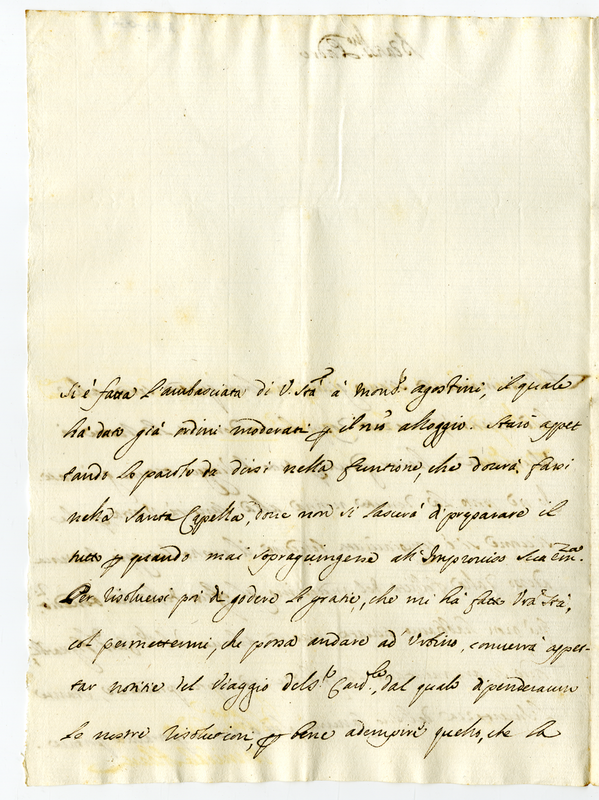 Si è fatta l'ambasciata di V. Stà à Mons.r agostini, il quale
hà dato già ordini moderati p il nrõ alloggio. Starò aspet
tando le parole da dirsi nella funtione, che dourà farsi
nella Santa Cappella, doue non si lascerà di preparare il
tutto p quando mai sopragiungesse all'Improuiso Sua Em.za
Per risoluersi poi di godere le gratie, che mi hà fatto Vrã Stà,
col permettermi, che possa andare ad Urbino, conuerrà aspet-
tar notitie del Viaggio del S.r Card.le, dal quale dipenderanno
le nostre risolutioni, p bene adempire quello, che la